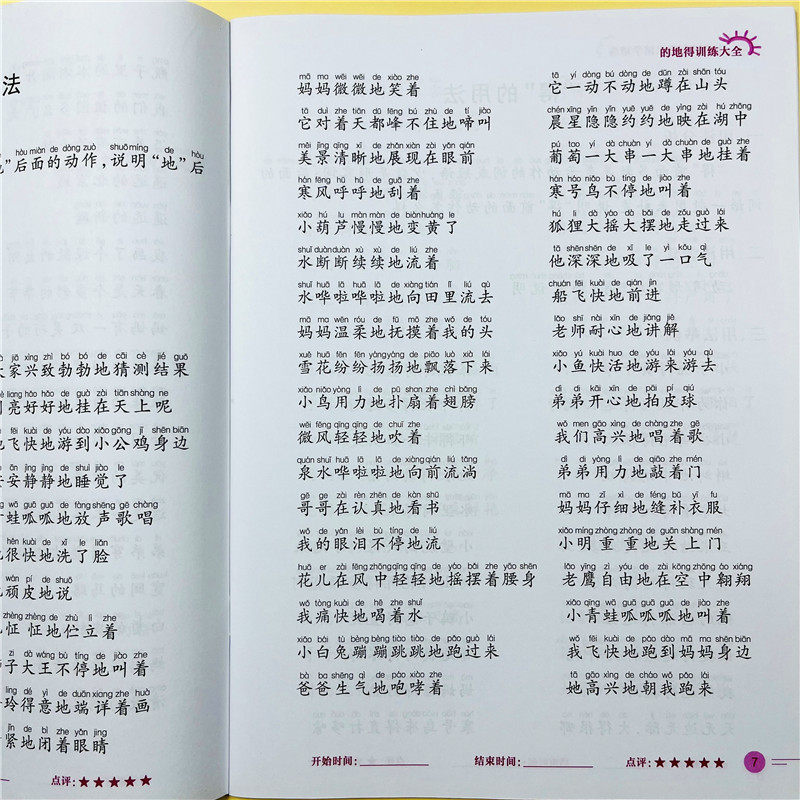 法
hòu miàn de dòng zuò shuō míng de hòu
”后面的动作,说明“地”后
jiā xìng zhì bó bó de cāi cè jié guǒ
家兴致勃勃地猜测结果
liàng hǎo hǎo de guà zài tiān shàng ne
亮好好地挂在天上呢
fēi kuài de yóu dào xiǎo gōng jī shēn biān
飞快地游到小公鸡身边
ān jìng jìng de shuì jiào le
安静静地睡觉了
wā guā guā de fàng shēng gē chàng
蛙呱呱地放声歌唱
hěn kuài de xǐ le liǎn
很快地洗了脸
wán pí de shuō
顽皮地说
zhèng zhèng de zhù lì zhe
怔怔地伫立着
zi dà wáng bù tíng de jiào zhe
子大王不停地叫着
líng dé yì de duān xiang zhe huà
玲得意地端详着画
jǐn de bì zhe yǎn jīng
紧地闭着眼睛
点评:★★★★★
的地得训练大全
mā ma wēi wēi de xiào zhe
妈妈微微地笑着
tā duì zhe tiān dū fēng bú zhù de tí jiào
它对着天都峰不住地啼叫
měi jǐng qīng xī de zhǎn xiàn zài yǎn qián
美景清晰地展现在眼前
hán fēng hū hū de guā zhe
寒风呼呼地刮着
xiǎo hú lu màn màn de biàn huáng le
小葫芦慢慢地变黄了
shuǐ duàn duàn xù xù de liú zhe
水断断续续地流着
shuǐ huā lā huā lā de xiàng tián lǐ liú qù
水哗啦哗啦地向田里流去
mā ma wēn róu de fǔ mō zhe wǒ de tóu
妈妈温柔地抚摸着我的头
xuě huā fēn fēn yáng yáng de piāo luò xià lái
雪花纷纷扬扬地飘落下来
xiǎo niǎo yòng lì de pū shan zhe chì bǎng
小鸟用力地扑扇着翅膀
wēi fēng qīng qīng de chuī zhe
微风轻轻地吹着
quán shuǐ huā lā lā de xiàng qián liú tǎng
泉水哗啦啦地向前流淌
gē ge zài rèn zhēn de kàn shū
哥哥在认真地看书
wǒ de yǎn lèi bù tíng de liú
我的眼泪不停地流
huā er zài fēng zhōng qīng qīng de yáo bǎi zhe yāo shēn
花儿在风中轻轻地摇摆着腰身
wǒ tòng kuài de hē zhe shuǐ
我痛快地喝着水
xiǎo bái tù bèng bèng tiào tiào de pǎo guò lái
小白兔蹦蹦跳跳地跑过来
bà ba shēng qì de páo xiào zhe
爸爸生气地咆哮着
tā yí dòng bú dòng de dūn zài shān tóu
它一动不动地蹲在山头
chén xīng yǐn yǐn yuē yuē de yìng zài hú zhōng
晨星隐隐约约地映在湖中
pú tao yí dà chuàn yí dà chuàn de guà zhe
葡萄一大串一大串地挂着
hán háo niǎo bù tíng de jiào zhe
寒号鸟不停地叫着
hú li dà yáo dà bǎi de zǒu guò lái
狐狸大摇大摆地走过来
tā shēn shēn de xī le yì kǒu qì
他深深地吸了一口气
chuán fēi kuài de qián jìn
船飞快地前进
lǎo shī nài xīn de jiǎng jiě
老师耐心地讲解
xiǎo yú kuài huo de yóu lái yóu qù
小鱼快活地游来游去
dì di kāi xīn de pāi pí qiú
弟弟开心地拍皮球
wǒ men gāo xìng de chàng zhe gē
我们高兴地唱着歌
dì di yòng lì de qiāo zhe mén
弟弟用力地敲着门
mā ma zǐ xì de féng bǔ yī fu
妈妈仔细地缝补衣服
xiǎo míng zhòng zhòng de guān shàng mén
小明重重地关上门
lǎo yīng zì yóu de zài kōng zhōng áo xiáng
老鹰自由地在空中翱翔
xiǎo qīng wā guā guā guā de jiào zhe
小青蛙呱呱呱地叫着
wǒ fēi kuài de pǎo dào mā ma shēn biān
我飞快地跑到妈妈身边
tā gāo xìng de cháo wǒ pǎo lái
她高兴地朝我跑来
开始时间: 结束时间: 点评:★★★★★ 7